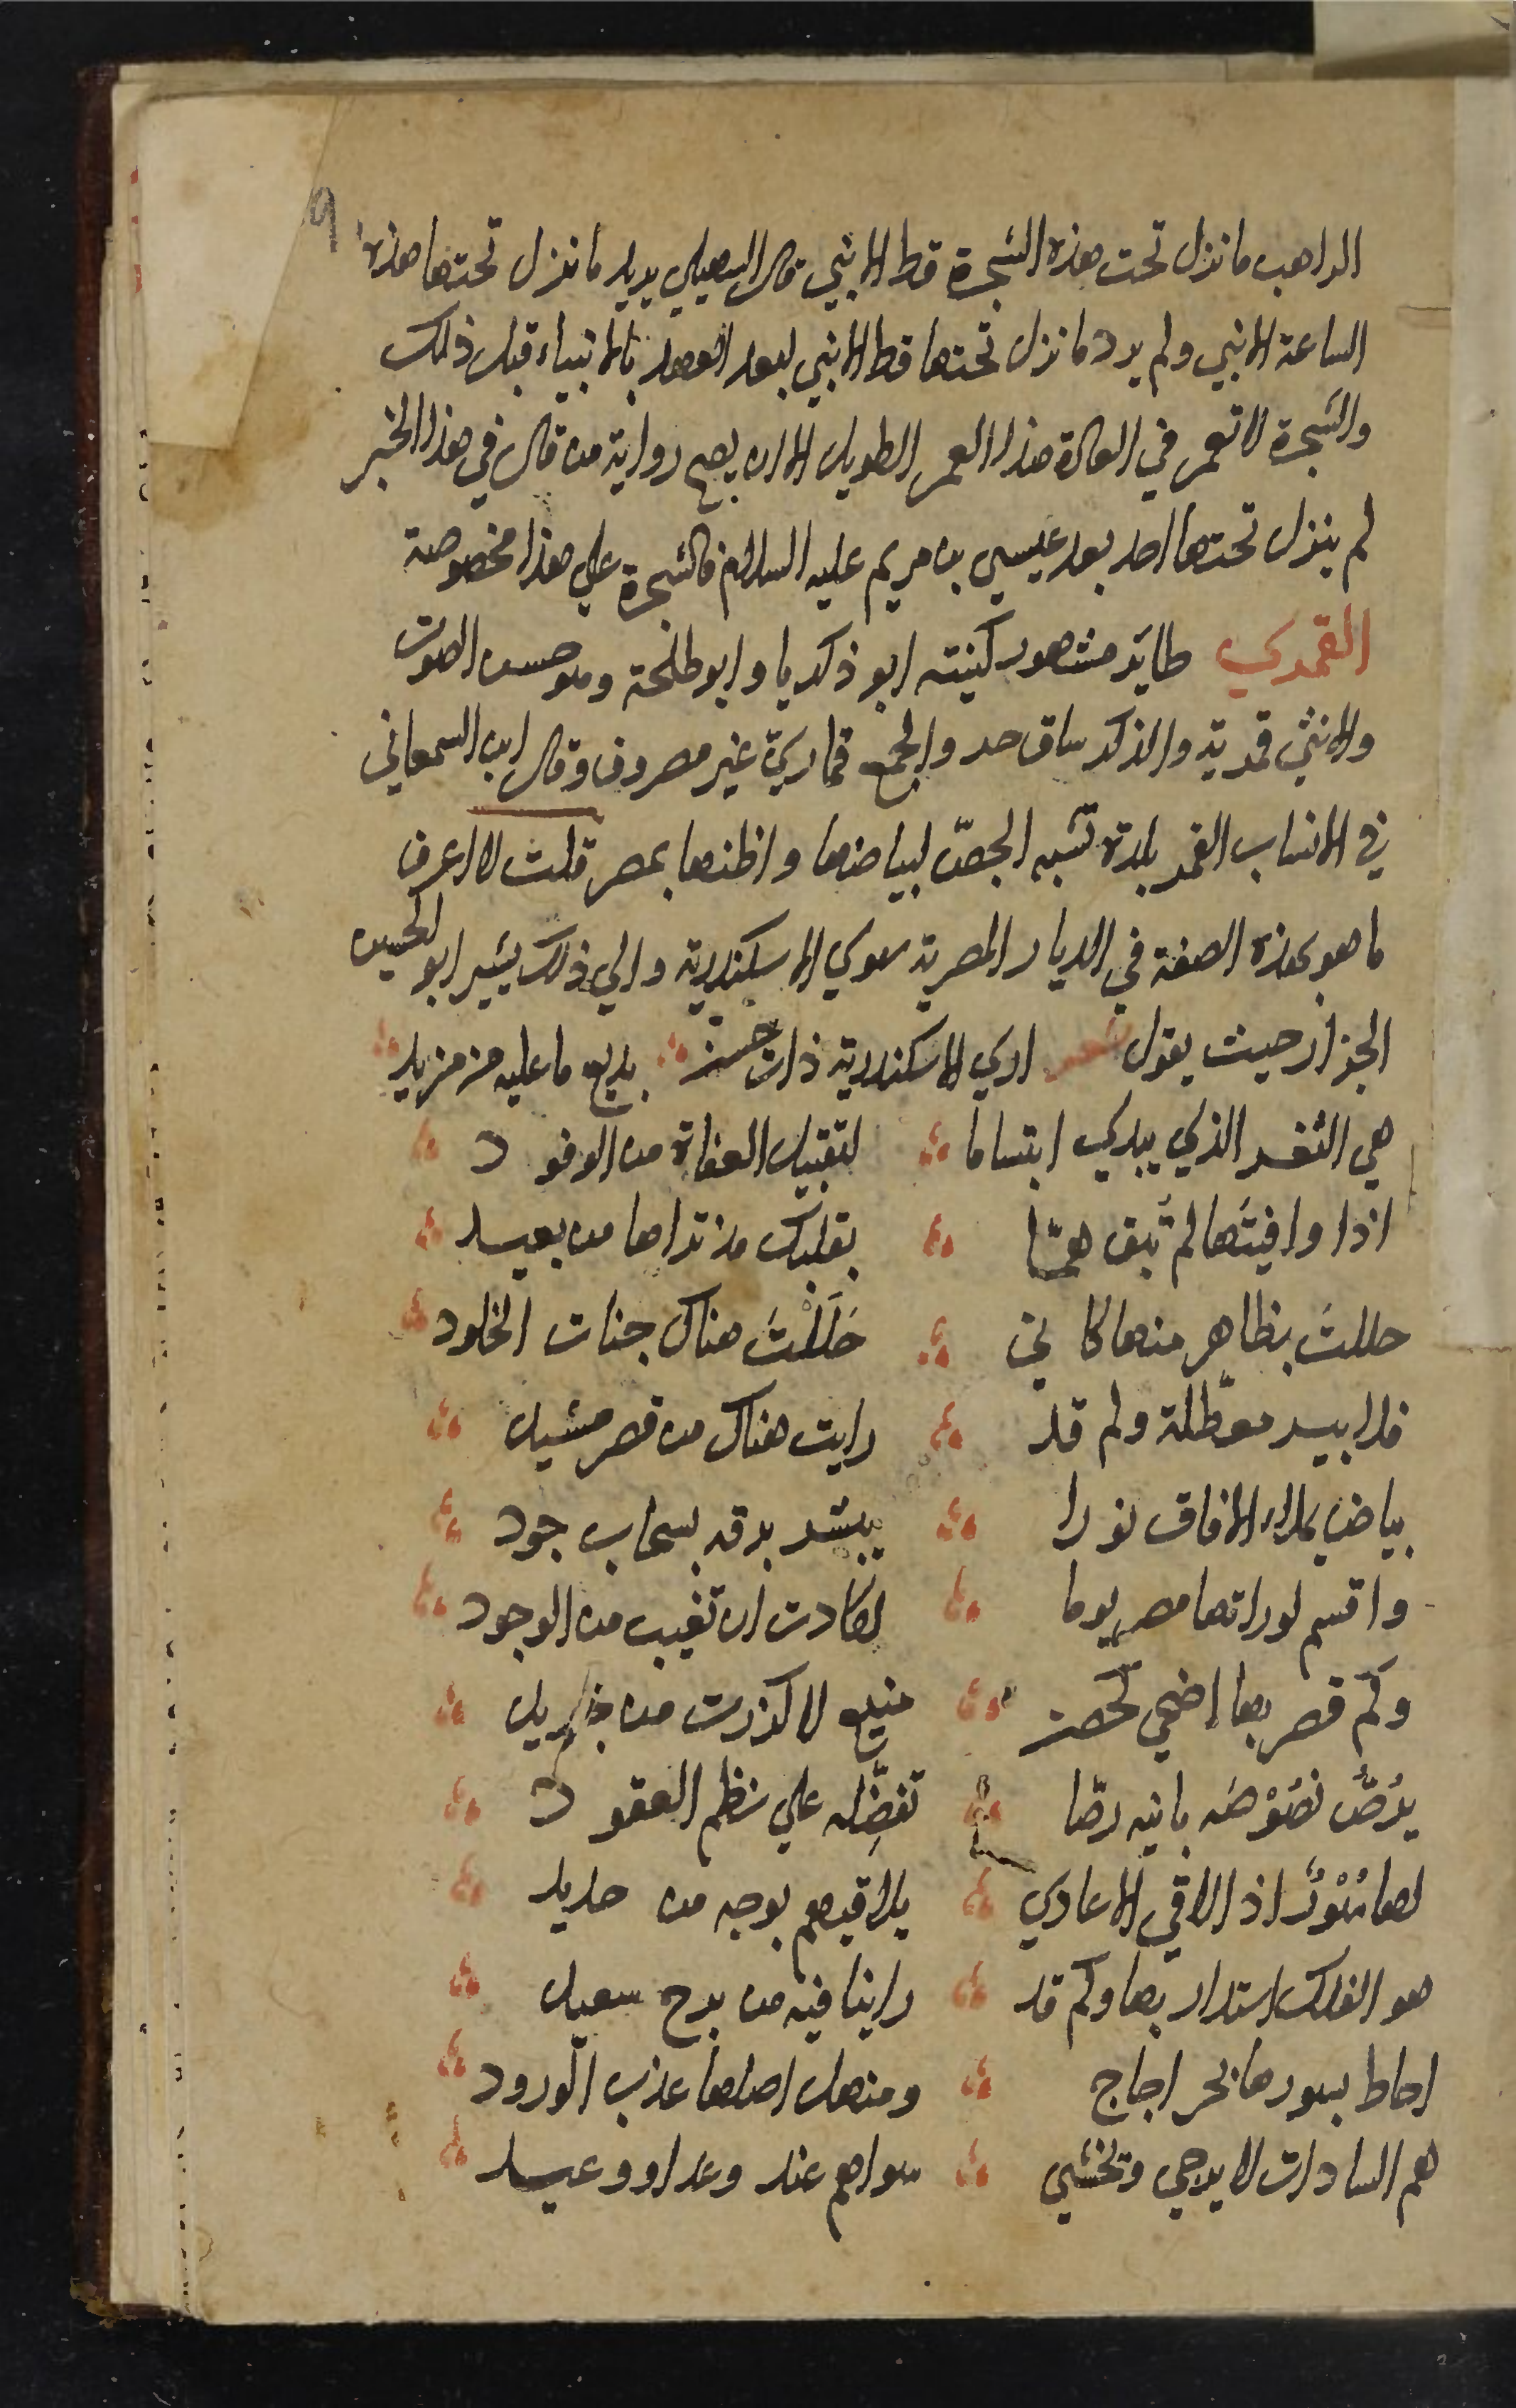 ٩
الراهب ما نزل تحت هذه الشجرة قط الا نبي قال السهيلي يريد ما نزل تحتها هذه
الساعة الا نبي ولم يرد ما نزل تحتها قط الا نبي لبعد العهد بالانبياء قبل ذلك
والشجرة لا تعمر في العادة هذا العمر الطويل الا ان يصح رواية من قال في هذا الخبر
لم ينزل تحتها احد بعد عيسي بن مريم عليه السلام فالشجرة علي هذا مخصوصة
القمري طائر مشهور كنيته ابو ذكريا وابو طلحة وهو حسن الصوت
والانثي قمرية والذكر ساق حر والجمع قماري غير مصروف وقال ابن السمعاني
في الانساب القمر بلدة تشبه الجصّ لبياضها واظنها بمصر قلت لا اعرف
ما هو بهذه الصفة في الديار المصرية سوي الاسكندرية والي ذلك يشير ابو الحسين
الجزار حيث يقول شعر اري الاسكندرية ذات حسن بديع ما عليه من مزيد
هي الثغر الذي يبدي ابتساما لتقبيل العفاة من الوفود
اذا وافيتها لم تبق همّا بقلبك مذ تراها من بعيد
حللتَ بظاهر منها كاني حَلَلْتَ هناك جنات الخلود
فلا بير معطّلة ولم قد رايت هناك من قصر مشيد
بياض يملاء الافاق نورا يبشر برقه بسحاب جود
واقسم لو راتها مصر يوما لكادت ان تغيب من الوجود
وكم قصر بها اضحي كحصن منيع لا كزرت من جريد
يرُصُّ نصُوْصَه بانيه رصّا تفضِّله علي نظم العقود
لها سُوْرٌ اذا لاقي الاعادي يلاقيهم بوجه من حديد
هو الفلك استدار بها وكم قد راينا فيه من برج سعيد
احاط بسورها بحر اجاج ومنهل اهلها عذب الورود
هم السادات لا يرجي وتخشي سواهم عند وعد او وعيد